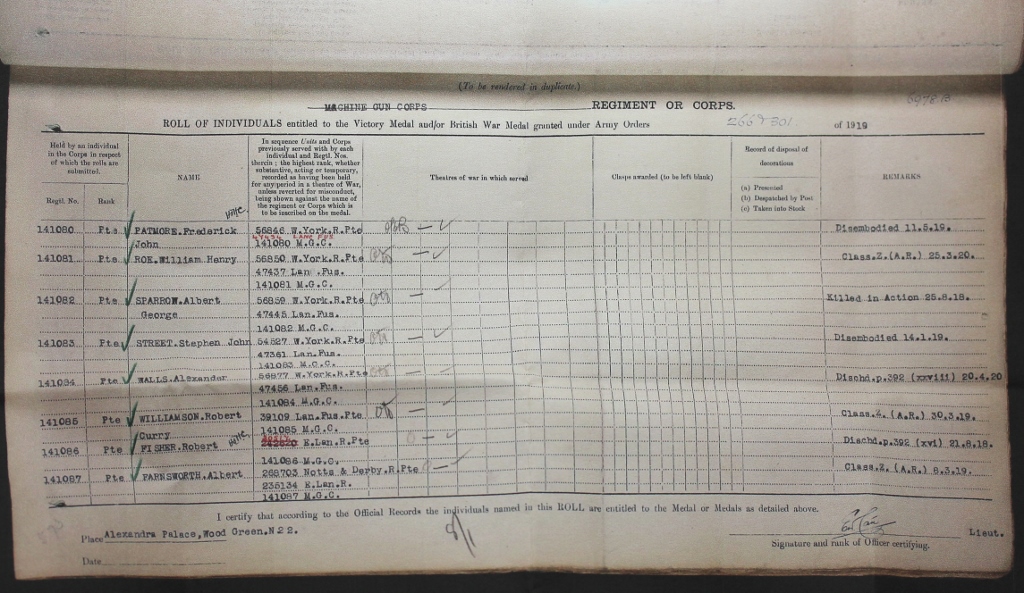 (To be rendered in duplicate.)
MACHINE GUN CORPS REGIMENT OR CORPS.
ROLL OF INDIVIDUALS entitled to the Victory Medal and/or British War Medal granted under Army Orders 266 & 301 of 1919
Held by an individual in the Corps in respect of which the rolls are submitted.
Regtl. No.
Rank
NAME
In sequence Units and Corps
previously served with by each
individual and Regtl. Nos.
therein; the highest rank, whether
substantive, acting or temporary,
recorded as having been held
for any period in a theatre of War,
unless reverted for misconduct,
being shown against the name of
the regiment or Corps which is
to be inscribed on the medal.
Theatres of war in which served
Clasps awarded (to be left blank)
Record of disposal of decorations
(a) Presented
(b) Despatched by Post
(c) Taken into Stock
REMARKS
141080 Pte PATMORE.Frederick 56846 W.York.R.Pte Disembodied 11.5.19.
John 141080 M.G.C.
141081 Pte ROE.William Henry 56850 W.York.R.Pte Class.Z.(A.R.) 25.3.20.
47437 Lan.Fus.
141081 M.G.C.
141082 Pte SPARROW.Albert 56859 W.York.R.Pte Killed in Action 25.8.18.
George 47445 Lan.Fus.
141082 M.G.C.
141083 Pte STREET.Stephen John 54527 W.York.R.Pte Disembodied 14.1.19.
47361 Lan.Fus.
141083 M.G.C.
141084 Pte WALLS.Alexander 56877 W.York.R.Pte Dischd.p.392 (xxviii) 20.4.20
47456 Lan.Fus.
141084 M.G.C.
141085 Pte WILLIAMSON.Robert 39109 Lan.Fus.Pte Class.Z.(A.R.) 30.3.19.
Curry 141085 M.G.C.
141086 Pte FISHER.Robert E.Lan.R.Pte Dischd.p.392 (xvi) 21.8.18.
141086 M.G.C.
141087 Pte FARNSWORTH.Albert 268703 Notts & Derby.R.Pte Class.Z.(A.R.) 8.3.19.
235134 E.Lan.R.
141087 M.G.C.
I certify that according to the Official Records the individuals named in this ROLL are entitled to the Medal or Medals as detailed above.
Place Alexandra Palace,Wood Green.N22.
Lieut.
Signature and rank of Officer certifying.
Date